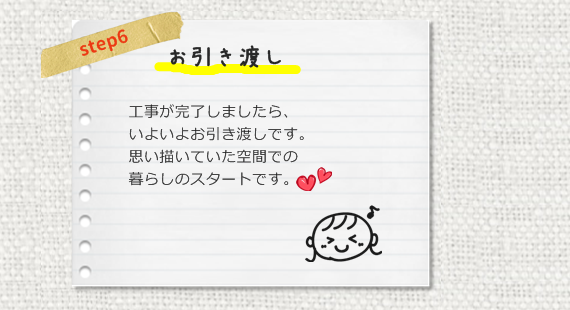 step6
お引き渡し
工事が完了しましたら、
いよいよお引き渡しです。
思い描いていた空間での
暮らしのスタートです。